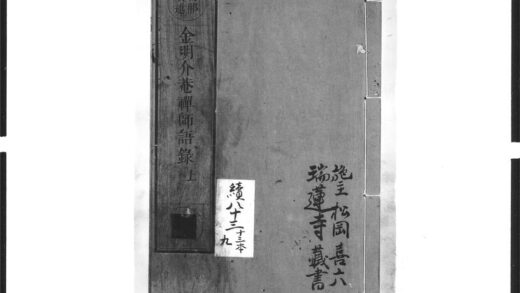 金明介菴禪師語錄 上
施主 松岡喜六
瑞蓮寺藏書
續八十三 十三本
九